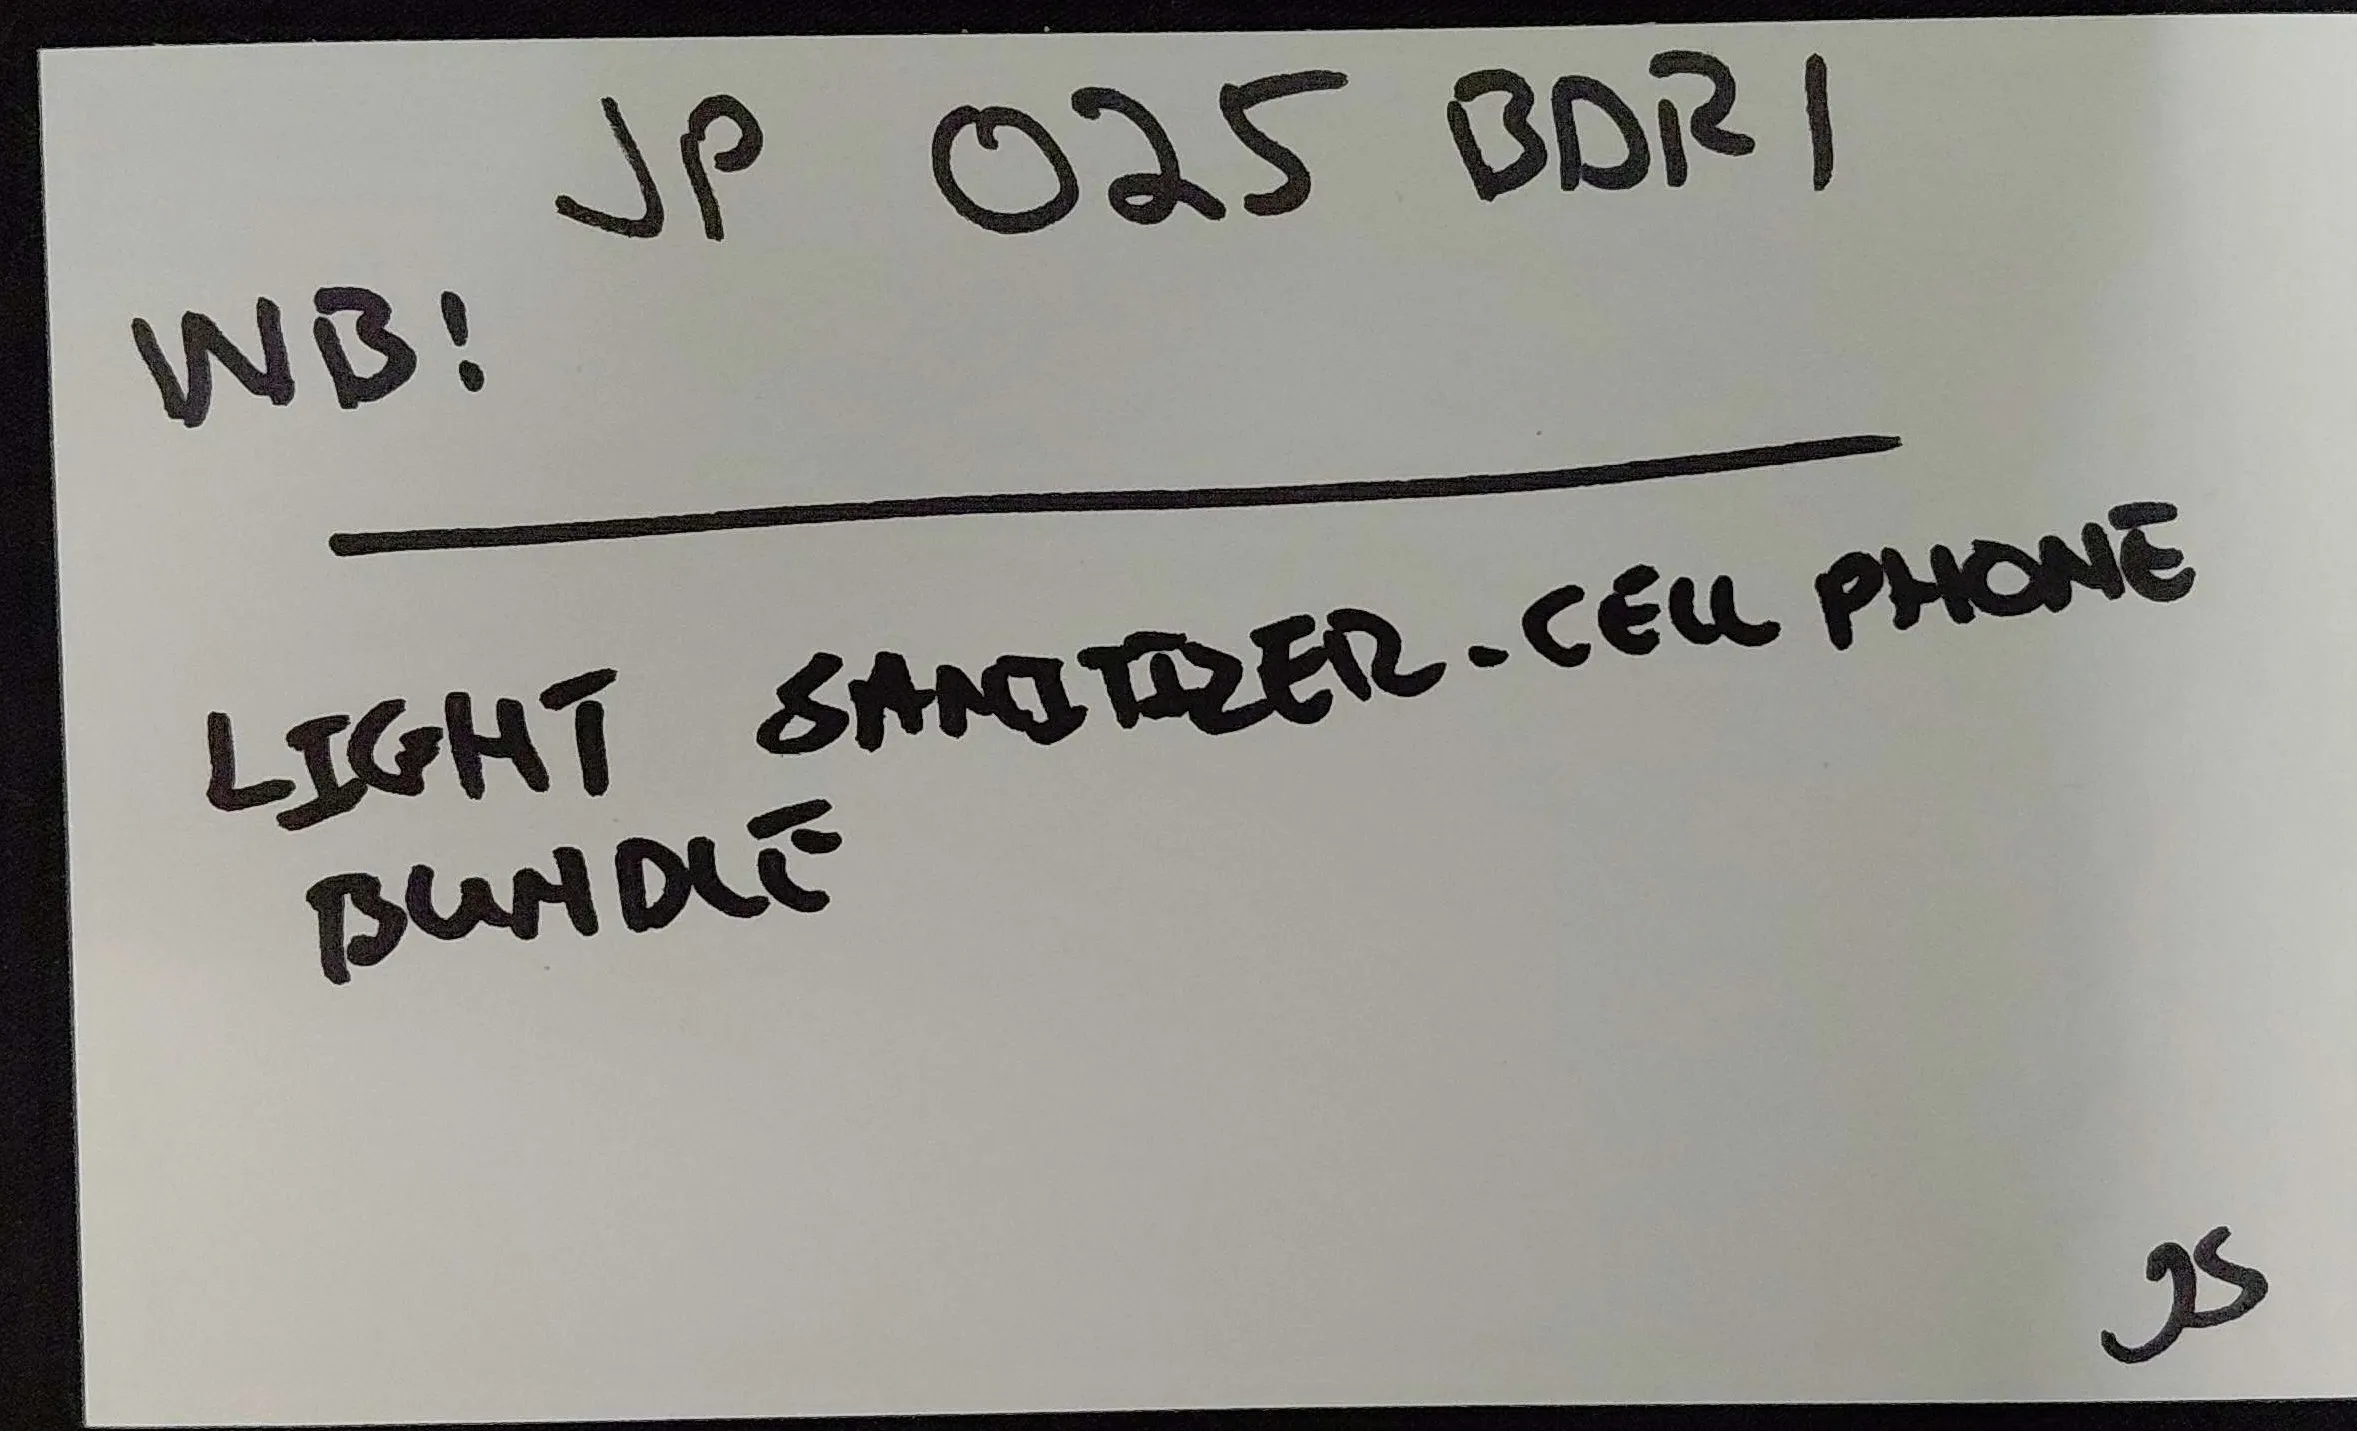 JP 025 BDR1
WB!
LIGHT SANITIZER-CELL PHONE
BUNDLE
JS